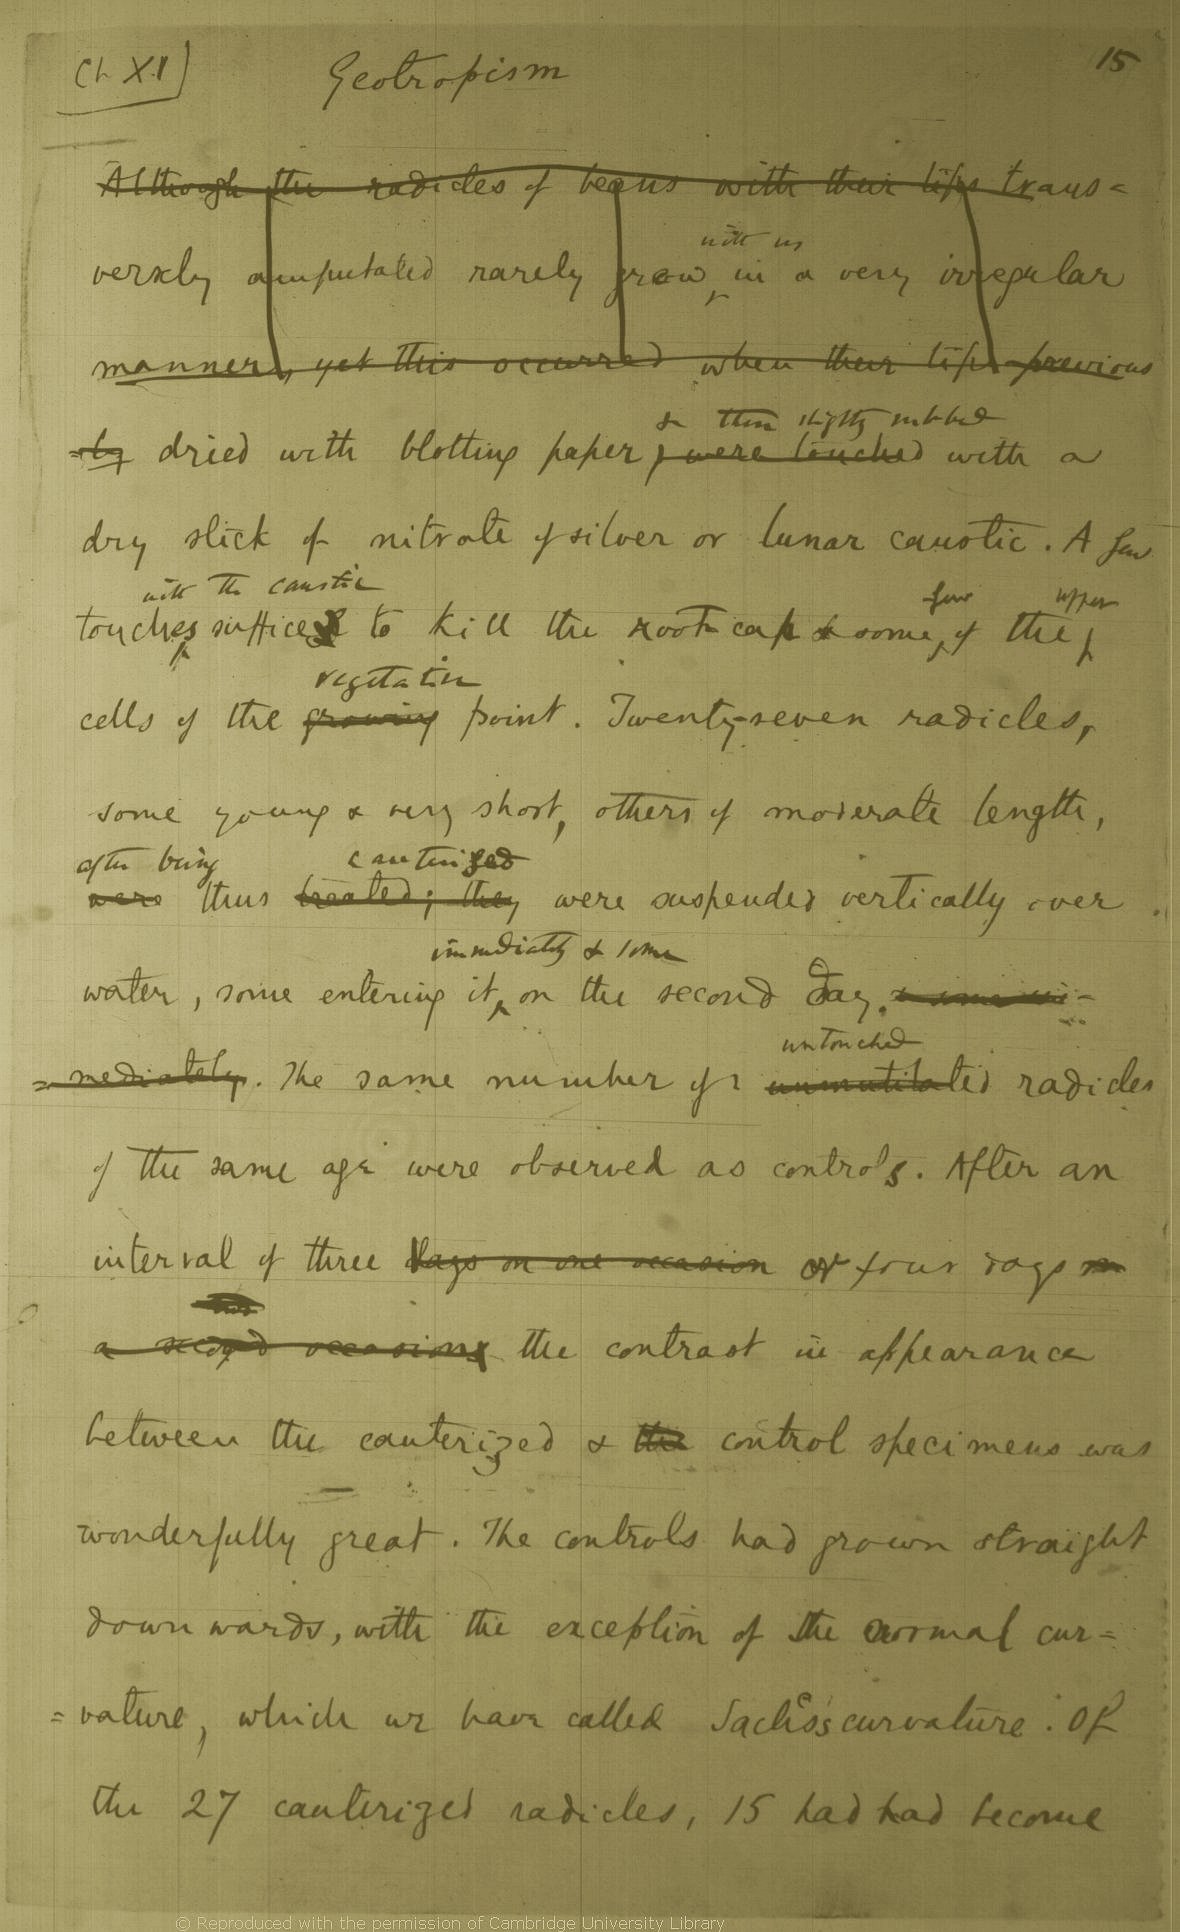 Ch XII
Geotropism
15
Although the radicles of beans with their tips trans=
with us
versely amputated rarely grow in a very irregular
manner, yet this occurred when their tips previous
& then slightly rubbed
=ly dried with blotting paper, were touched with a
dry stick of nitrate of silver or lunar caustic. A few
with the caustic few upper
touches suffices to kill the root cap & some of the
vegetative
cells of the growing point. Twenty-seven radicles,
some young & very short, others of moderate length,
after being cauterized
were thus treated; they were suspended vertically over
immediately & some
water, some entering it on the second day. & some im-
untouched
=mediately. The same number of unmutilated radicles
of the same age were observed as controls. After an
interval of three days on one occasion or four days on
a second occasion the contrast in appearance
between the cauterized & the control specimens was
wonderfully great. The controls had grown straight
downwards, with the exception of the normal cur=
=vature, which we have called Sachs's curvature. Of
the 27 cauterized radicles, 15 had had become
© Reproduced with the permission of Cambridge University Library